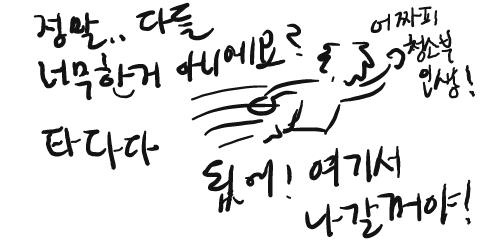 정말.. 다들
너무한거 아니에요?
어짜피
청소부
인생!
타다다
됩에! 여기서
나갈꺼야!